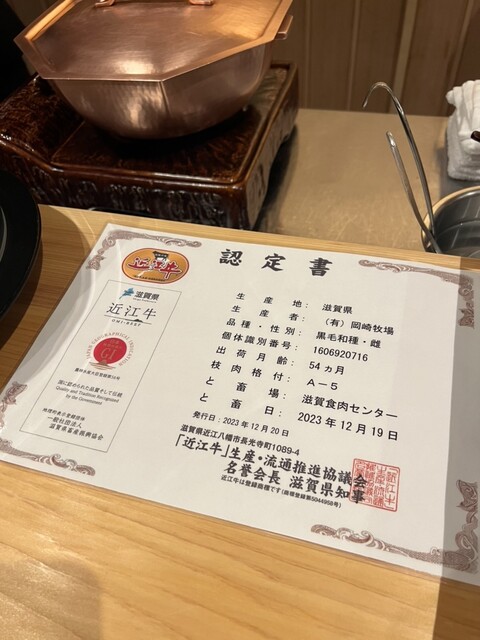 認定書
近江牛
滋賀県
近江牛
OMI-BEEF
JAPAN GEOGRAPHICAL INDICATION
GI
農林水産大臣登録第56号
国に認められた品質そして伝統
Quality and Tradition Recognized
by the Government
地理的表示登録団体
一般社団法人
滋賀県畜産振興協会
生産地： 滋賀県
生産者： （有）岡崎牧場
品種・性別： 黒毛和種・雌
個体識別番号： 1606920716
出荷月齢： 54ヵ月
枝肉格付： A－5
と畜場： 滋賀食肉センター
と畜日： 2023年12月19日
発行日：2023年12月20日
滋賀県近江八幡市長光寺町1089-4
「近江牛」生産・流通推進協議会
名誉会長 滋賀県知事
近江牛は登録商標です（商標登録第5044958号）